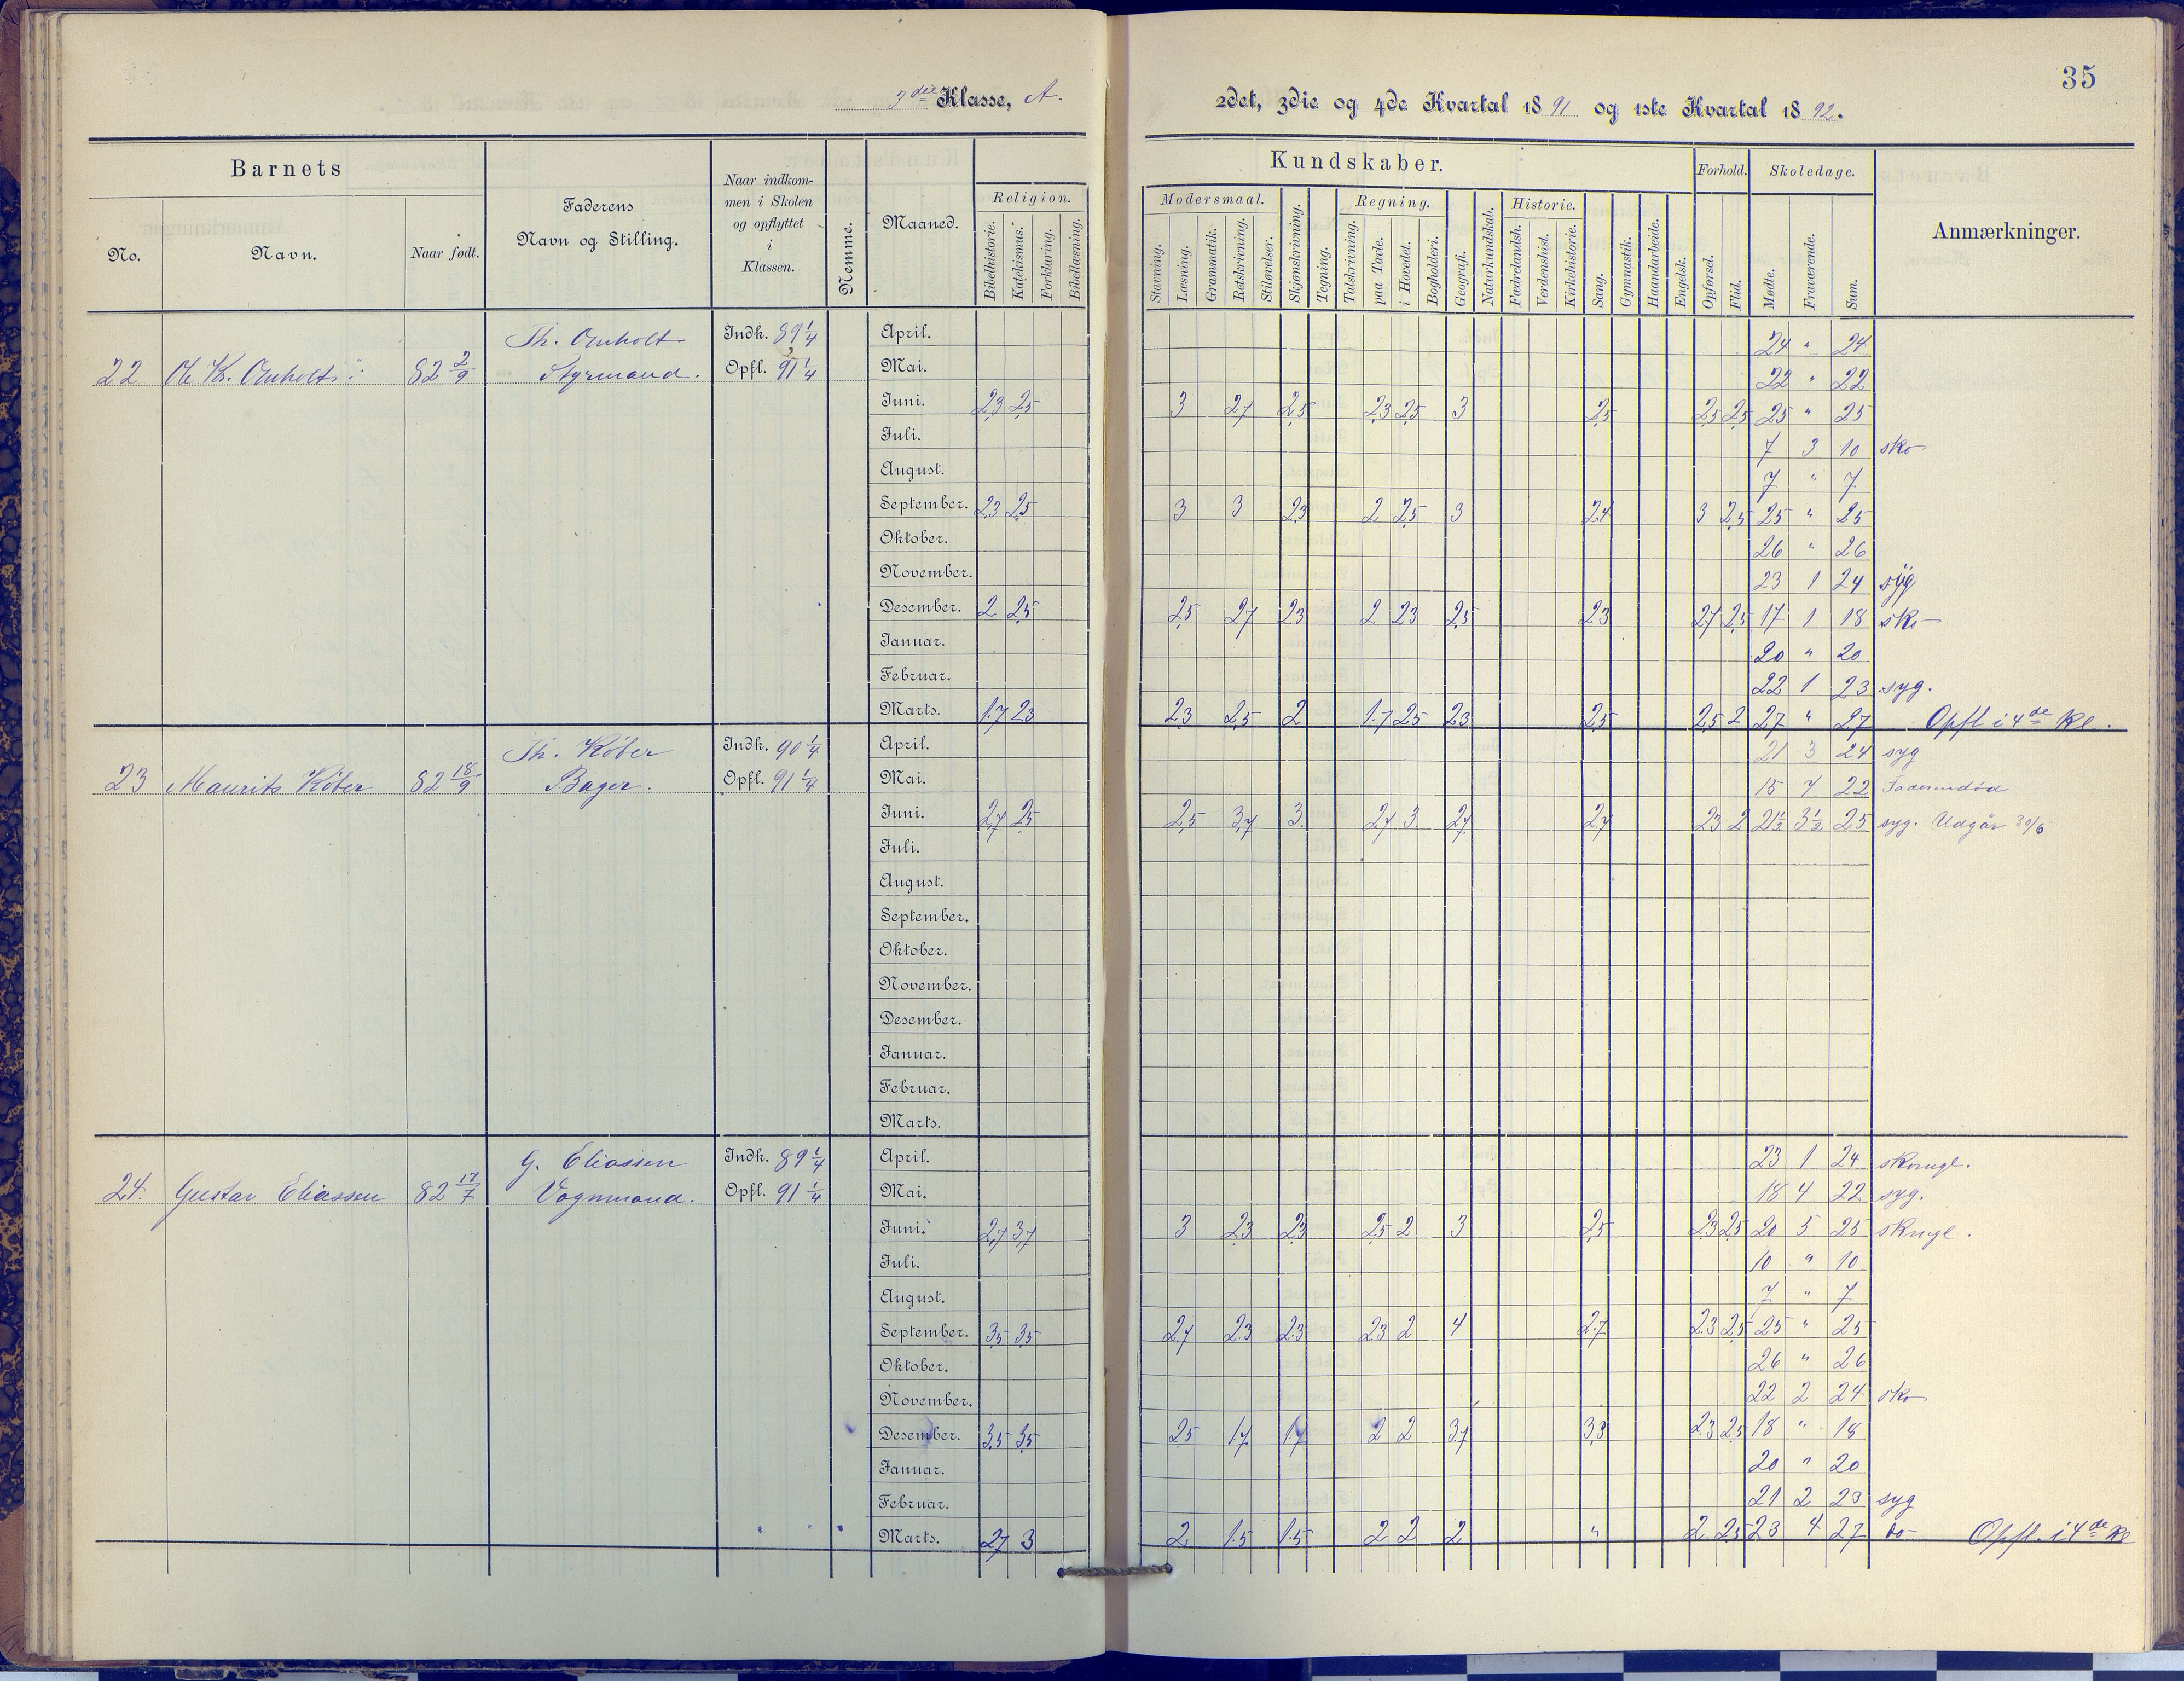 35
3die Klasse, A.
2det, 3die og 4de Kvartal 1891 og 1ste Kvartal 1892.
Barnets
No. Navn. Naar født.
Faderens Navn og Stilling.
Naar indkommen i Skolen og opflyttet i Klassen.
Nemme.
Maaned.
Kundskaber.
Religion.
Bibelhistorie. Katekismus. Forklaring. Bibellæsning.
Modersmaal.
Stavning. Læsning. Grammatik. Retskrivning. Stiløvelser.
Skjønskrivning. Tegning.
Regning.
Talskrivning. paa Tavle. i Hovedet. Bogholderi.
Geografi. Naturkundskab.
Historie.
Fædrelandsh. Verdenshist. Kirkehistorie.
Sang. Gymnastik. Haandarbeide. Engelsk.
Forhold.
Opførsel. Flid.
Skoledage.
Møde. Fraværende. Sum.
Anmærkninger.
22 82 2/9 Th. Omholt Styrmand. Indk. 89 1/4 Opfl. 91 1/4
April. 24 " 24
Mai. 22 " 22
Juni. 2,3 2,5 3 2,7 2,5 2,3 2,5 3 2,5 2,5 2,5 25 " 25
Juli. 7 3 10 sko
August. 7 " 7
September. 2,3 2,5 3 3 2,3 2 2,5 3 2,4 3 2,5 25 " 25
Oktober. 26 " 26
November. 23 1 24 syg
Desember. 2 2,5 2,5 2,7 2,3 2 2,3 2,5 2,3 2,7 2,5 17 1 18 sko
Januar. 20 " 20
Februar. 22 1 23 syg.
Marts. 1.7 2,3 2,3 2,5 2 1.7 2,5 2,3 2,5 2,5 2 27 " 27 Opfl i 4de Kl.
23 Maurits Köber 82 18/9 Th. Köber Bager. Indk. 90 1/4 Opfl. 91 1/4
April. 21 3 24 syg
Mai. 15 7 22
Juni. 2,7 2,5 2,5 3,7 3 2,7 3 2,7 2,7 2,3 2 21 1/2 3 1/2 25 syg. Udgår 30/6
Juli.
August.
September.
Oktober.
November.
Desember.
Januar.
Februar.
Marts.
24. Gustav Eliassen 82 17/7 G. Eliassen Vognmand. Indk. 89 1/4 Opfl. 91 1/4
April. 23 1 24 skomgl.
Mai. 18 4 22 syg.
Juni. 2,7 3,7 3 2,3 2,3 2,5 2 3 2,5 2,3 2,5 20 5 25 skmgl.
Juli. 10 " 10
August. 7 " 7
September. 3,5 3,5 2,7 2,3 2,3 2,3 2 4 2,7 2,3 2,5 25 " 25
Oktober. 26 " 26
November. 22 2 24 sko
Desember. 3,5 3,5 2,5 1,7 1,7 2 2 3,7 3,3 2,3 2,5 18 " 18
Januar. 20 " 20
Februar. 21 2 23 syg
Marts. 2,7 3 2 1.5 1.5 2 2 2 " 2 2,5 23 4 27 do Opfl. i 4de Kl